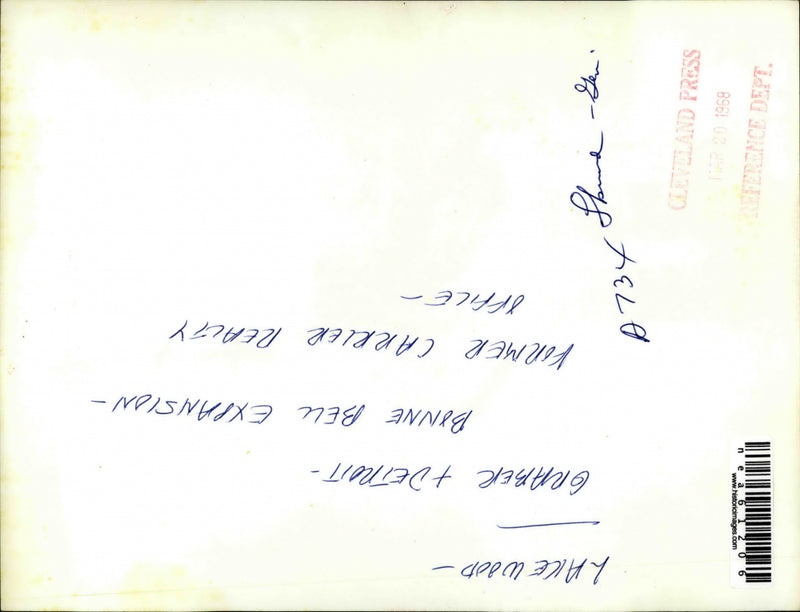 LAKEWOOD –
GRABER + DETROIT –
BONNE BELL EXPANSION –
FORMER CARRIER REALTY
OFFICE –
A734
– Gen.
CLEVELAND PRESS
MAR 20 1968
REFERENCE DEPT.
nea61206
www.historicimages.com